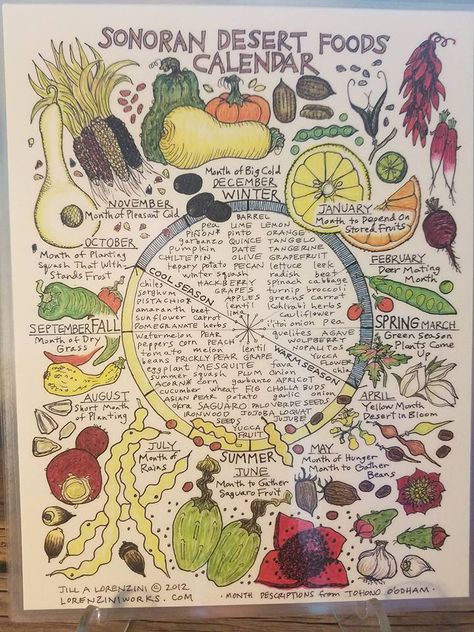 SONORAN DESERT FOODS
CALENDAR
Month of Big Cold
DECEMBER
WINTER
JANUARY
Month to Depend on
Stored Fruits
FEBRUARY
Deer Mating
Month
SPRING MARCH
Green Season
Plants Come
Up
APRIL
Yellow Month
Desert in Bloom
MAY
Month of Hunger
Month to Gather
Beans
SUMMER
JUNE
Month to Gather
Saguaro Fruit
JULY
Month of
Rains
AUGUST
Short Month
of Planting
SEPTEMBER FALL
Month of Dry
Grass
OCTOBER
Month of Planting
Squash That With-
Stands Frost
NOVEMBER
Month of Pleasant Cold
COOL SEASON
WARM SEASON
BARREL
pea LIME LEMON
PIÑON* pinto ORANGE
garbanzo QUINCE TANGELO
pumpkin DATE TANGERINE
CHILTEPIN OLIVE GRAPEFRUIT
tepary potato PECAN lettuce leek
winter squash radish beet
chiles HACKBERRY spinach cabbage
sorghum GRAPES turnip broccoli
PISTACHIO* APPLES greens carrot
amaranth beet lentil kohlrabi herbs
sunflower carrot lima cauliflower
POMEGRANATE herbs i'itoi onion pea
watermelon PEAR quelites AGAVE
peppers corn PEACH WOLFBERRY
tomato melon lentil NOPALITOS
beans PRICKLY PEAR GRAPE YUCCA
eggplant MESQUITE tava FLOWER
summer squash PLUM Onion chia
ACORN* corn garbanzo APRICOT
cucumber wheat FIG CHOLLA BUDS
ASIAN PEAR potato garlic onion
okra SAGUARO PALO VERDE SEEDS
IRONWOOD JOJOBA LOQUAT
SEEDS JUJUBE
YUCCA
FRUIT
JILL A LORENZINI © 2012
LORENZINIWORKS. COM
· MONTH DESCRIPTIONS from TOHONO O'ODHAM.